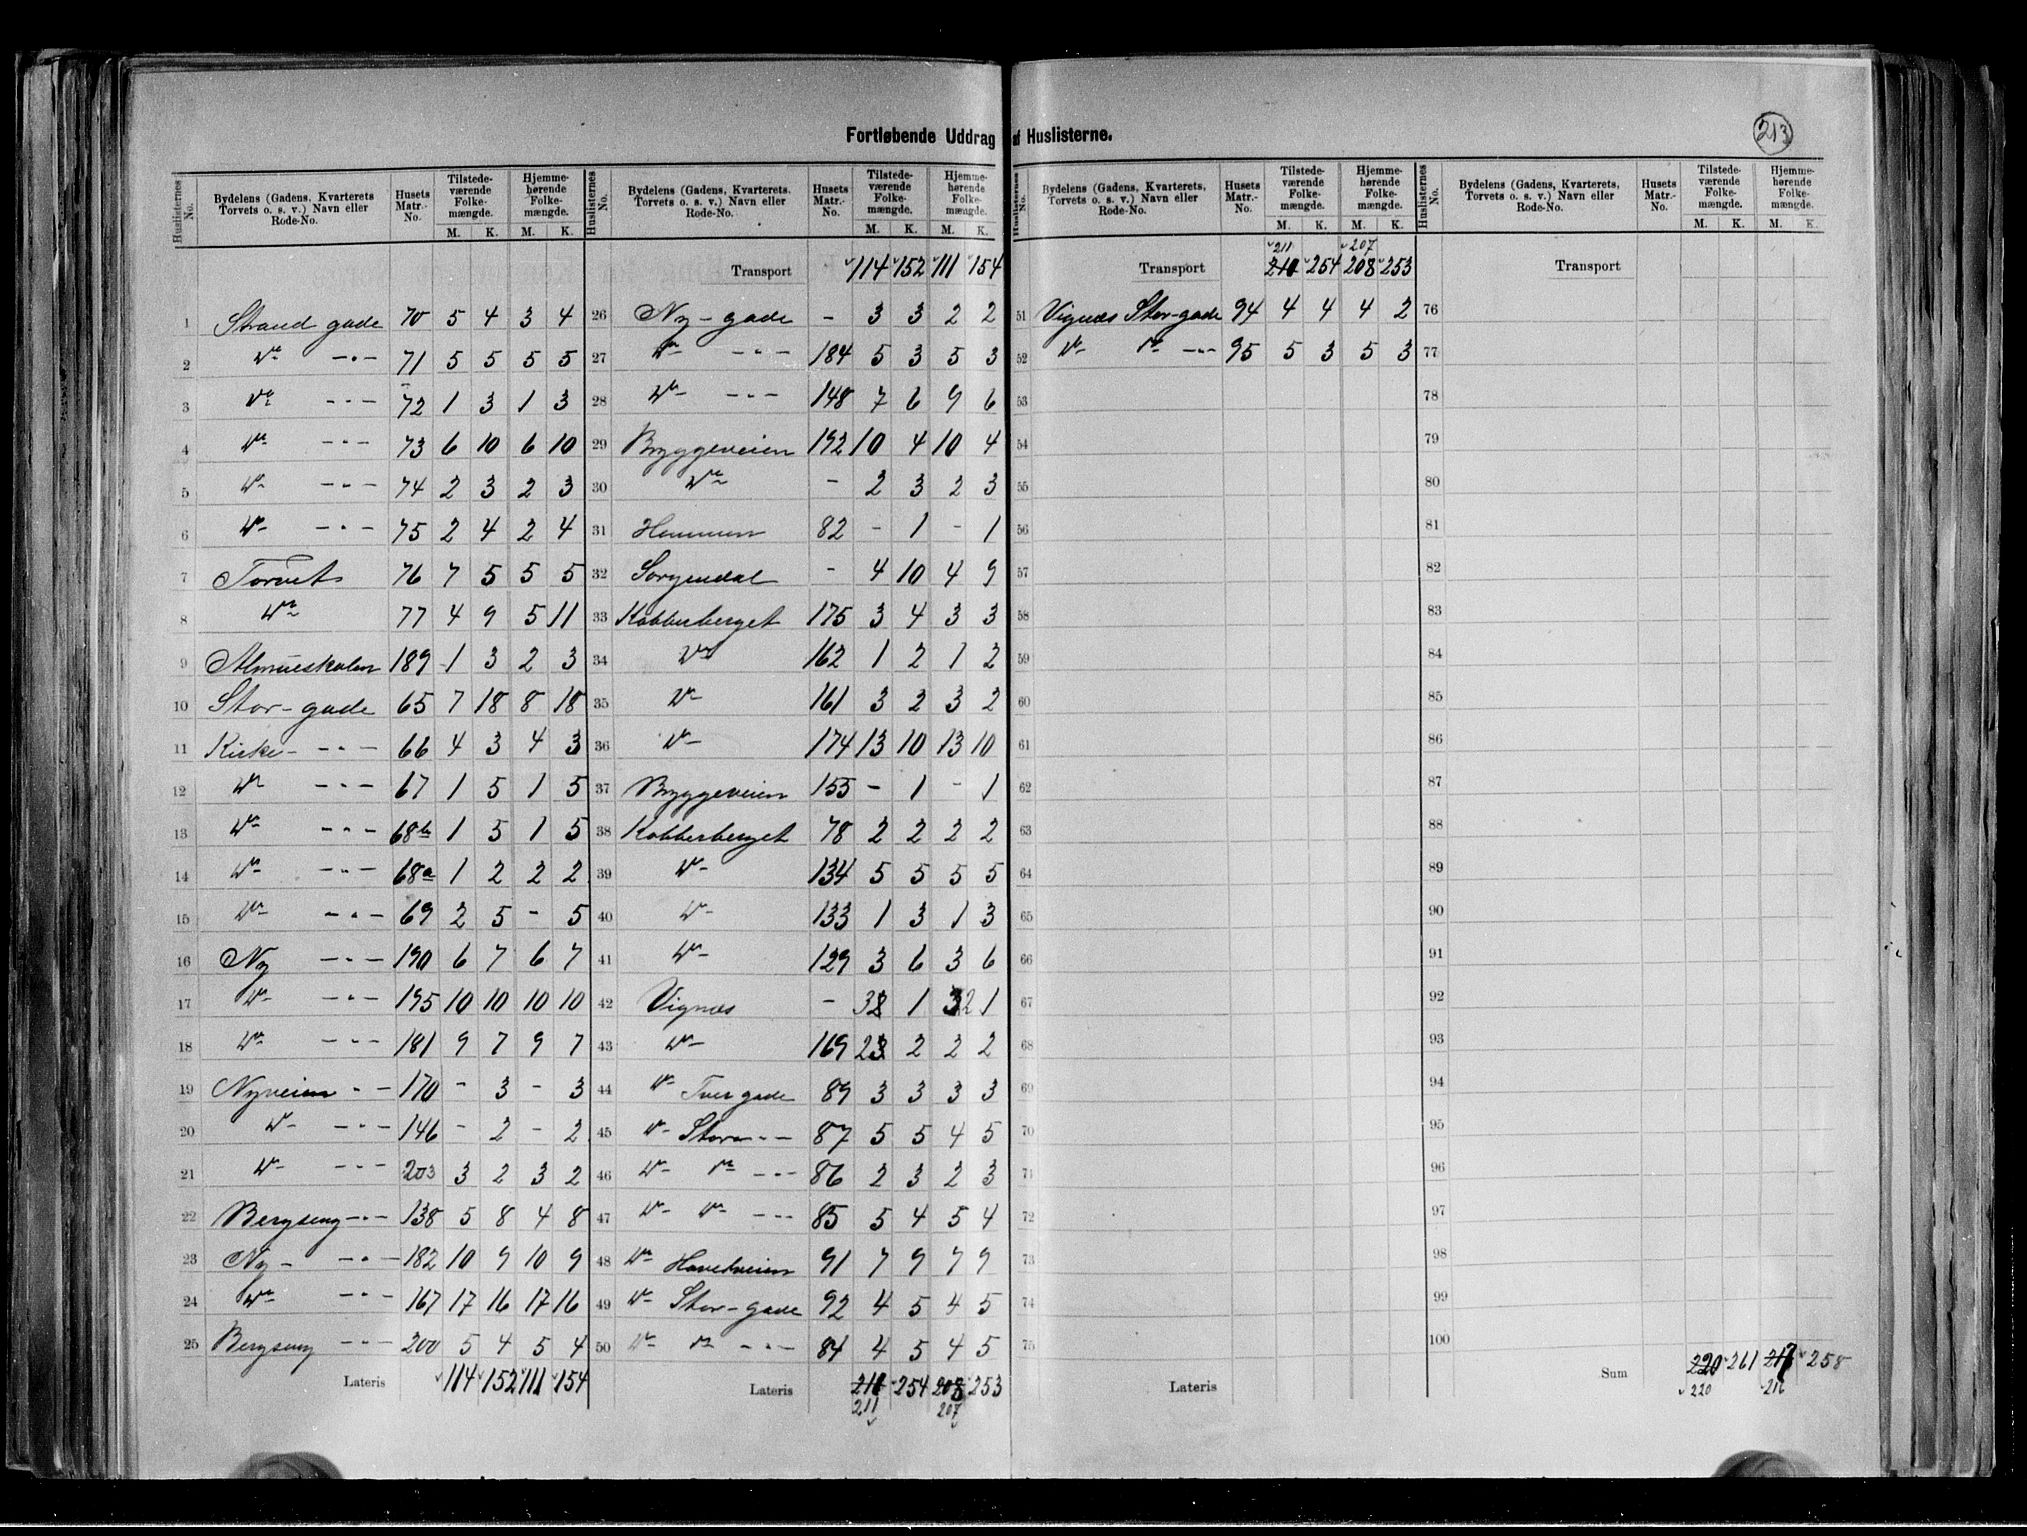 213
Fortløbende Uddrag af Huslisterne.
Huslisternes No. | Bydelens (Gadens, Kvarterets Torvets o. s. v.) Navn eller Rode-No. | Husets Matr.-No. | Tilstedeværende Folkemængde. M. K. | Hjemmehørende Folkemængde. M. K.
1 Strand gade 70 5 4 3 4
2 Do -"- 71 5 5 5 5
3 Do -"- 72 1 3 1 3
4 Do -"- 73 6 10 6 10
5 Do -"- 74 2 3 2 3
6 Do -"- 75 2 4 2 4
7 Torvet 76 7 5 5 5
8 Do 77 4 9 5 11
9 Almueskolen 189 1 3 2 3
10 Stor-gade 65 7 18 8 18
11 Kirke- -"- 66 4 3 4 3
12 Do -"- 67 1 5 1 5
13 Do -"- 68b 1 5 1 5
14 Do -"- 68a 1 2 2 2
15 Do -"- 69 2 5 - 5
16 Ny -"- 190 6 7 6 7
17 Do -"- 195 10 10 10 10
18 Do -"- 181 9 7 9 7
19 Nyveien -"- 170 - 3 - 3
20 Do -"- 146 - 2 - 2
21 Do -"- 203 3 2 3 2
22 Bergseng -"- 138 5 8 4 8
23 Ny- -"- 182 10 9 10 9
24 Do -"- 167 17 16 17 16
25 Bergseng -"- 200 5 4 5 4
Lateris 114 152 111 154
Huslisternes No. | Bydelens (Gadens, Kvarterets. Torvets o. s. v.) Navn eller Rode-No. | Husets Matr.-No. | Tilstedeværende Folkemængde. M. K. | Hjemmehørende Folkemængde. M. K.
Transport 114 152 111 154
26 Ny-gade - 3 3 2 2
27 Do -"- 184 5 3 5 3
28 Do -"- 148 7 6 9 6
29 Bryggeveien 192 10 4 10 4
30 Do - 2 3 2 3
31 Hemmen 82 - 1 - 1
32 Sorgendal - 4 10 4 9
33 Kobberberget 175 3 4 3 3
34 Do 162 1 2 1 2
35 Do 161 3 2 3 2
36 Do 174 13 10 13 10
37 Bryggeveien 155 - 1 - 1
38 Kobberberget 78 2 2 2 2
39 Do 134 5 5 5 5
40 Do 133 1 3 1 3
41 Do 129 3 6 3 6
42 Vignæs - 3 1 2 1
43 Do 169 2 2 2 2
44 Do Tvergade 89 3 3 3 3
45 Do Stor -"- 87 5 5 4 5
46 Do Do -"- 86 2 3 2 3
47 Do Do -"- 85 5 4 5 4
48 Do Hovedveien 91 7 9 7 9
49 Do Stor-gade 92 4 5 4 5
50 Do Do -"- 84 4 5 4 5
Lateris 210 254 208 253
211 207
Huslisternes No. | Bydelens (Gadens, Kvarterets, Torvets o. s. v.) Navn eller Rode-No. | Husets Matr.-No. | Tilstedeværende Folkemængde. M. K. | Hjemmehørende Folkemængde. M. K.
211 207
Transport 210 254 208 253
51 Vignæs Stor-gade 94 4 4 4 2
52 Do Do -"- 95 5 3 5 3
53
54
55
56
57
58
59
60
61
62
63
64
65
66
67
68
69
70
71
72
73
74
75
Lateris
Huslisternes No. | Bydelens (Gadens, Kvarterets, Torvets o. s. v.) Navn eller Rode-No. | Husets Matr.-No. | Tilstedeværende Folkemængde. M. K. | Hjemmehørende Folkemængde. M. K.
Transport
76
77
78
79
80
81
82
83
84
85
86
87
88
89
90
91
92
93
94
95
96
97
98
99
100
Sum 220 261 217 258
220 216